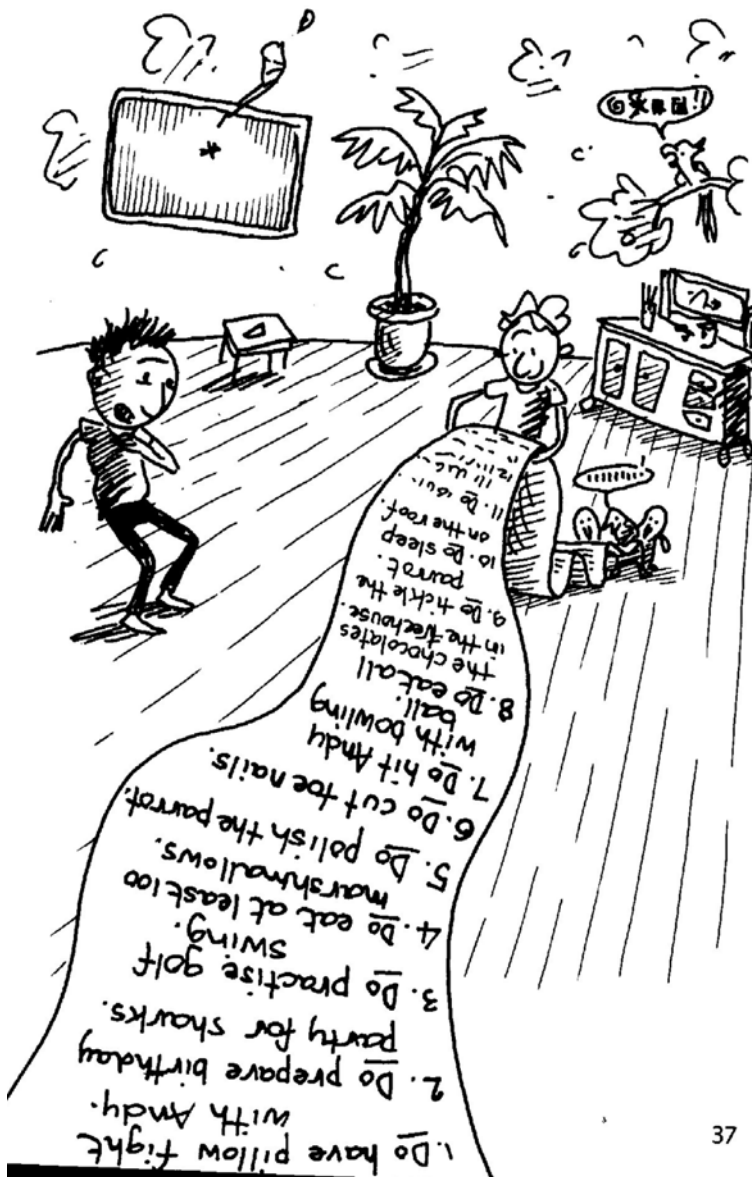 1. Do have pillow fight
with Andy.
2. Do prepare birthday
party for sharks.
3. Do practise golf
swing.
4. Do eat at least 100
marshmallows.
5. Do polish the parrot.
6. Do cut toe nails.
7. Do hit Andy
with bowling
ball.
8. Do eat all
the chocolates
in the treehouse.
9. Do tickle the
parrot.
10. Do sleep
on the roof.
11. Do
37